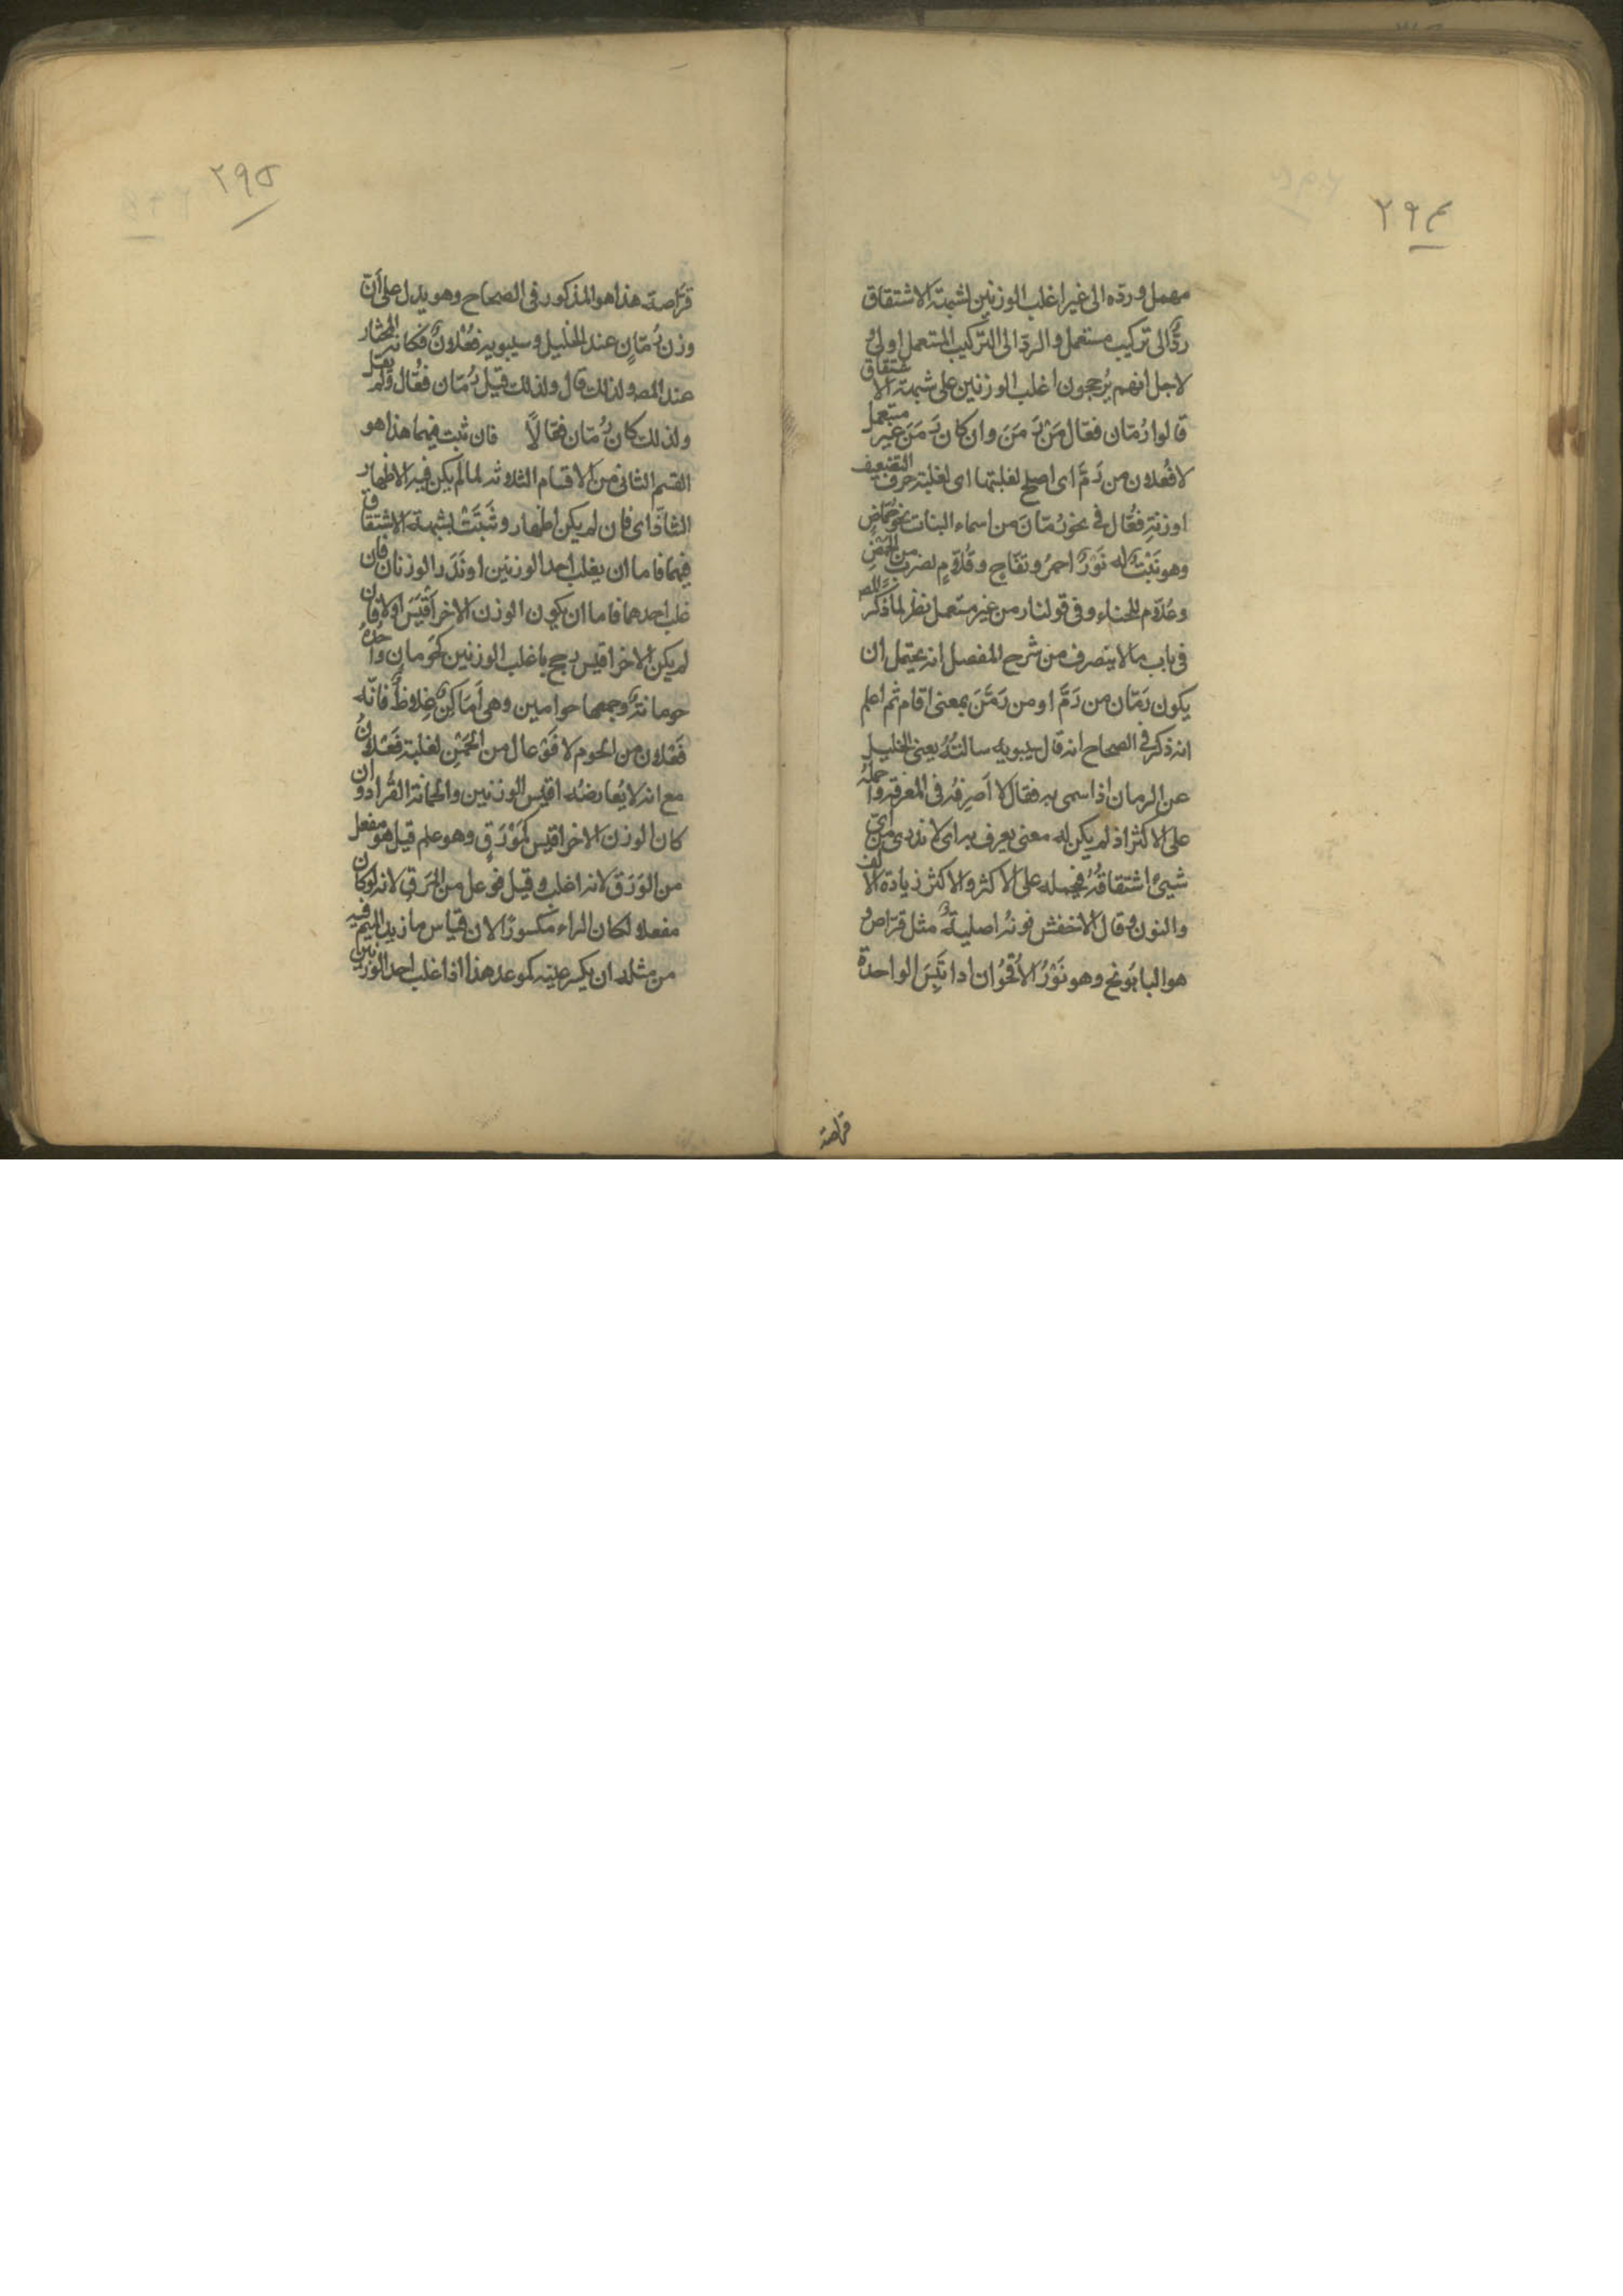 ٢٩٤
مهمل ورده الى غير اغلب الوزنين لشبهة الاشتقاق
ردٌّ الى تركيب مستعمل والردّ الى التركيب المستعمل اولى
لاجل انهم يُرجحون اغلب الوزنين على شبهة الاشتقاق
قالوا رُمّان فعّال مَنْ رَمَنَ وان كان رَمَنَ غير مستعمل
لا فُعلان من رَمَّ اى اصلح لغلبتها اى لغلبة حرف التضعيف
او زنةِ فعُّال فى نحو رُمّان من اسماء النبات نحو حُمّاضٍ
وهو نَبْتٌ له نَوْرٌ احمرُ وتفّاحٍ وقُلّامٍ لضرب من الحَمْضِ
وعُلّام للحناء وفى قولنا رمن غير مستعمل نظر لما ذكر المص
فى باب ما لا ينصرف من شرح المفصل انه يحتمل ان
يكون رَمّان من رَمَّ او من رَمَنَ بمعنى اقام ثم اعلم
انه ذكر فى الصحاح انه قال سيبويه سالتُهُ يعنى الخليل
عن الرمان اذا سمى به فقال لا اَصرِفُه فى المعرفة واحمِلُهُ
على الاكثر اذ لم يكن له معنى يعرف به اى لا ندرى من اىّ
شيئ اشتقاقُهُ فيحمله على الاكثر والاكثر زيادة الالف
والنون وقال الاخفش نونه اصلية مثل قرّاص و
هو البابُونَج وهو نَوْرُ الاُقحُوان اذا يَبَسَ الواحدة
قراصة
٢٩٥
قرّاصة هذا هو المذكور فى الصحاح وهو يدل على أنّ
وزن رُمّانٍ عند الخليل وسيبويه فعُلانٌ فكانه المختار
عند المص ولذلك قال ولذلك قيل رُمّان فعُّال ولم يقل
ولذلك كان رُمّان فعّالاً فان ثبت فيهما هذا هو
القسم الثانى من الاقسام الثلاثة لما لم يكن فيه الاظهار
الشاذّ اى فان لم يكن اظهار وثَبَتَتْ شبهة الاشتقاق
فيهما فاما ان يغلب احد الوزنين او نَدَرَ الوزنان فان
غلب احدهما فاما ان يكون الوزن الاخر اَقيَسَ اولا فان
لم يكن الاخر اقيس رجح باغلب الوزنين كحَومانٍ واحدهُ
حومانةٌ وجمعها حوامين وهى اَمَاكِنُ غِلاظٌ فانّه
فَعْلان من الحوم لا فَوْعال من الحَمْنِ لغلبة فَعْلان
مع انه لا يُعارضُه اقيس الوزنين والحمانة القُراد وان
كان الوزن الاخر اقيس كمَوْرَقٍ وهو علم قيل هو مفعل
من الوَرَقَ لانه اغلب وقيل فوعل من المَرَقِ لانه لو كان
مفعلا لكان الراء مكسورًا لان قياس ما زيد الميم فيه
من مثله ان يكسر عينه كموعد هذا اذا غلب احد الوزنين